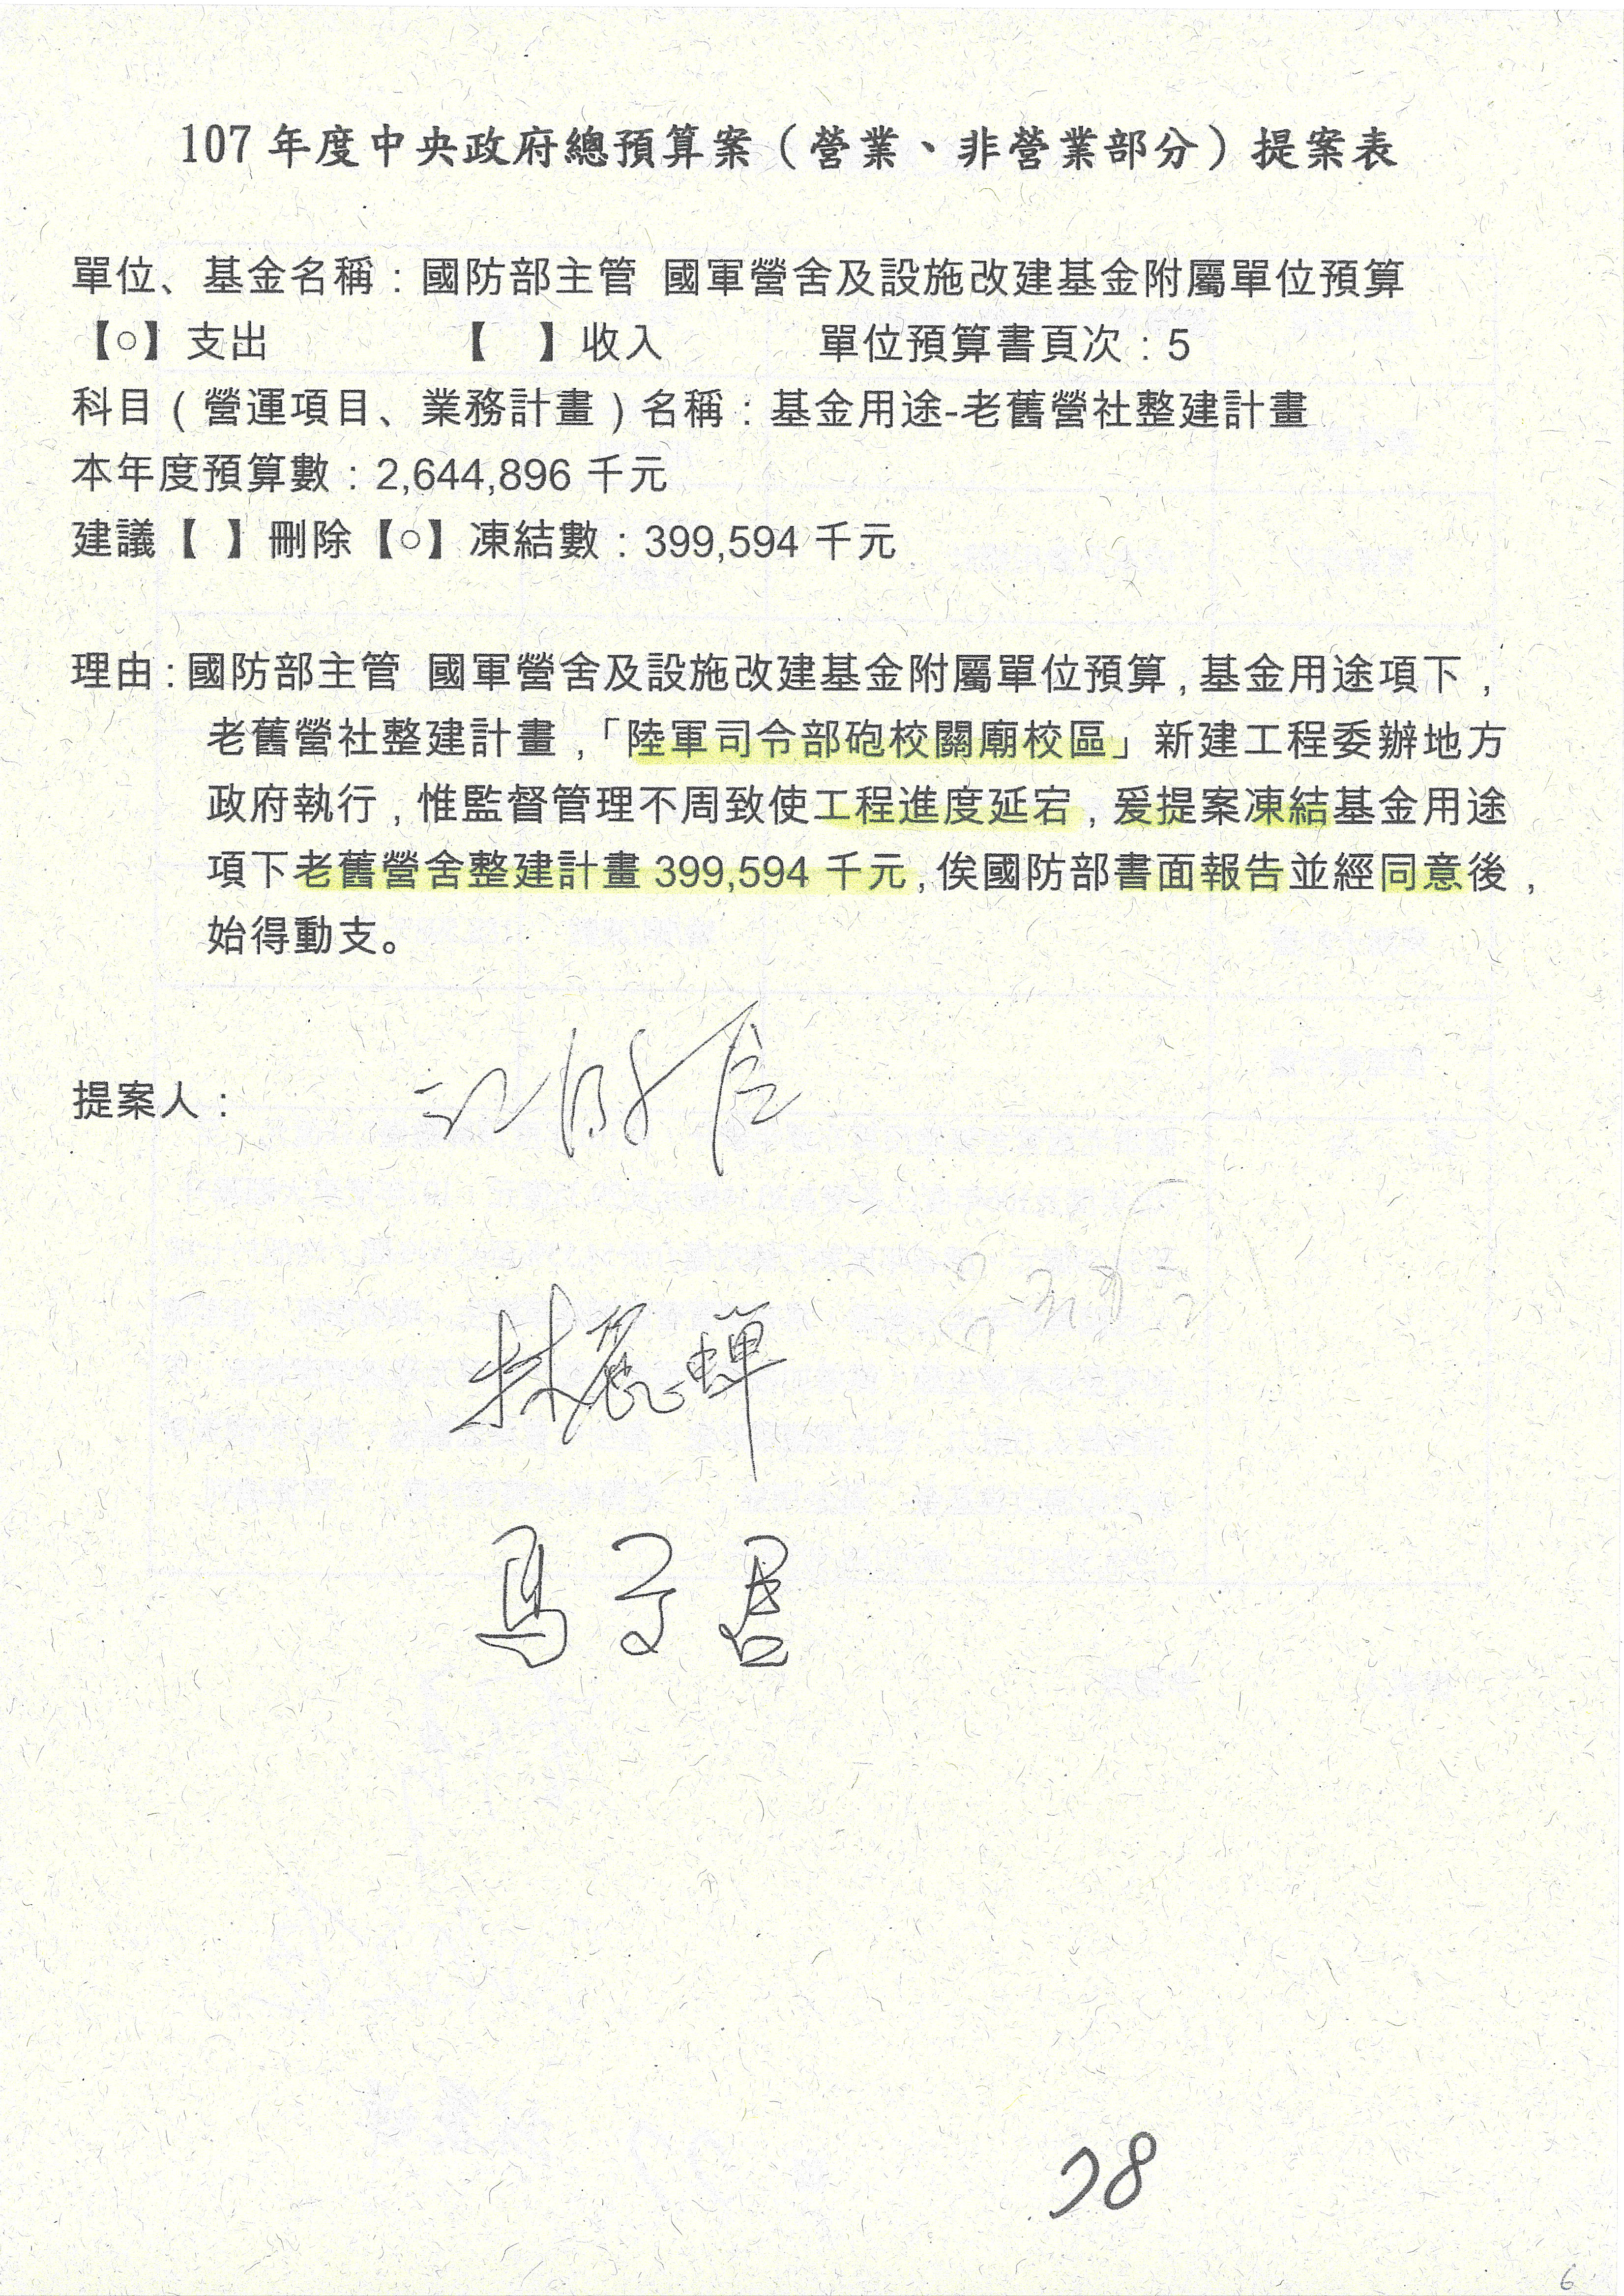 107年度中央政府總預算案（營業、非營業部分）提案表
單位、基金名稱：國防部主管 國軍營舍及設施改建基金附屬單位預算
【○】支出 【 】收入 單位預算書頁次：5
科目（營運項目、業務計畫）名稱：基金用途-老舊營社整建計畫
本年度預算數：2,644,896 千元
建議【 】刪除【○】凍結數：399,594 千元
理由：國防部主管 國軍營舍及設施改建基金附屬單位預算，基金用途項下，
老舊營社整建計畫，「陸軍司令部砲校關廟校區」新建工程委辦地方
政府執行，惟監督管理不周致使工程進度延宕，爰提案凍結基金用途
項下老舊營舍整建計畫 399,594 千元，俟國防部書面報告並經同意後，
始得動支。
提案人：
林麗蟬
馬文君
38
6